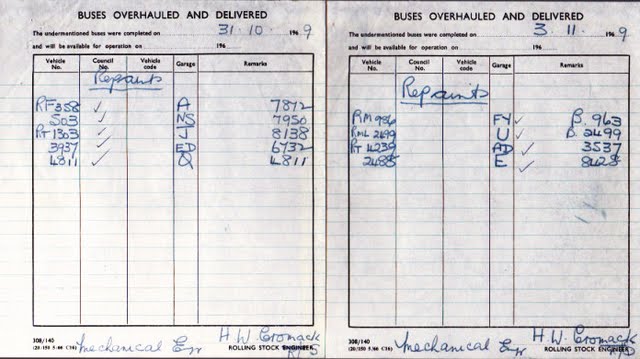 BUSES OVERHAULED AND DELIVERED
The undermentioned buses were completed on 31.10. 1969
and will be available for operation on 196
Vehicle No. Council No. Vehicle code Garage Remarks
Repaints
RF 358 ✓ A 7872
503 ✓ NS 7950
RT 1303 ✓ J 8138
3937 ✓ ED 6732
4811 ✓ Q 4811
308/140
(20/150 5/66 C38) Mechanical Egr H.W. Cromack
ROLLING STOCK ENGINEER
BUSES OVERHAULED AND DELIVERED
The undermentioned buses were completed on 3.11. 1969
and will be available for operation on 196
Vehicle No. Council No. Vehicle code Garage Remarks
Repaints
RM 986 FY ✓ B. 963
RML 2499 U ✓ B. 2499
RT 4239 AD ✓ 3537
2485 E ✓ 8425
308/140
(20/150 5/66 C38) Mechanical Egr H.W. Cromack
ROLLING STOCK ENGINEER